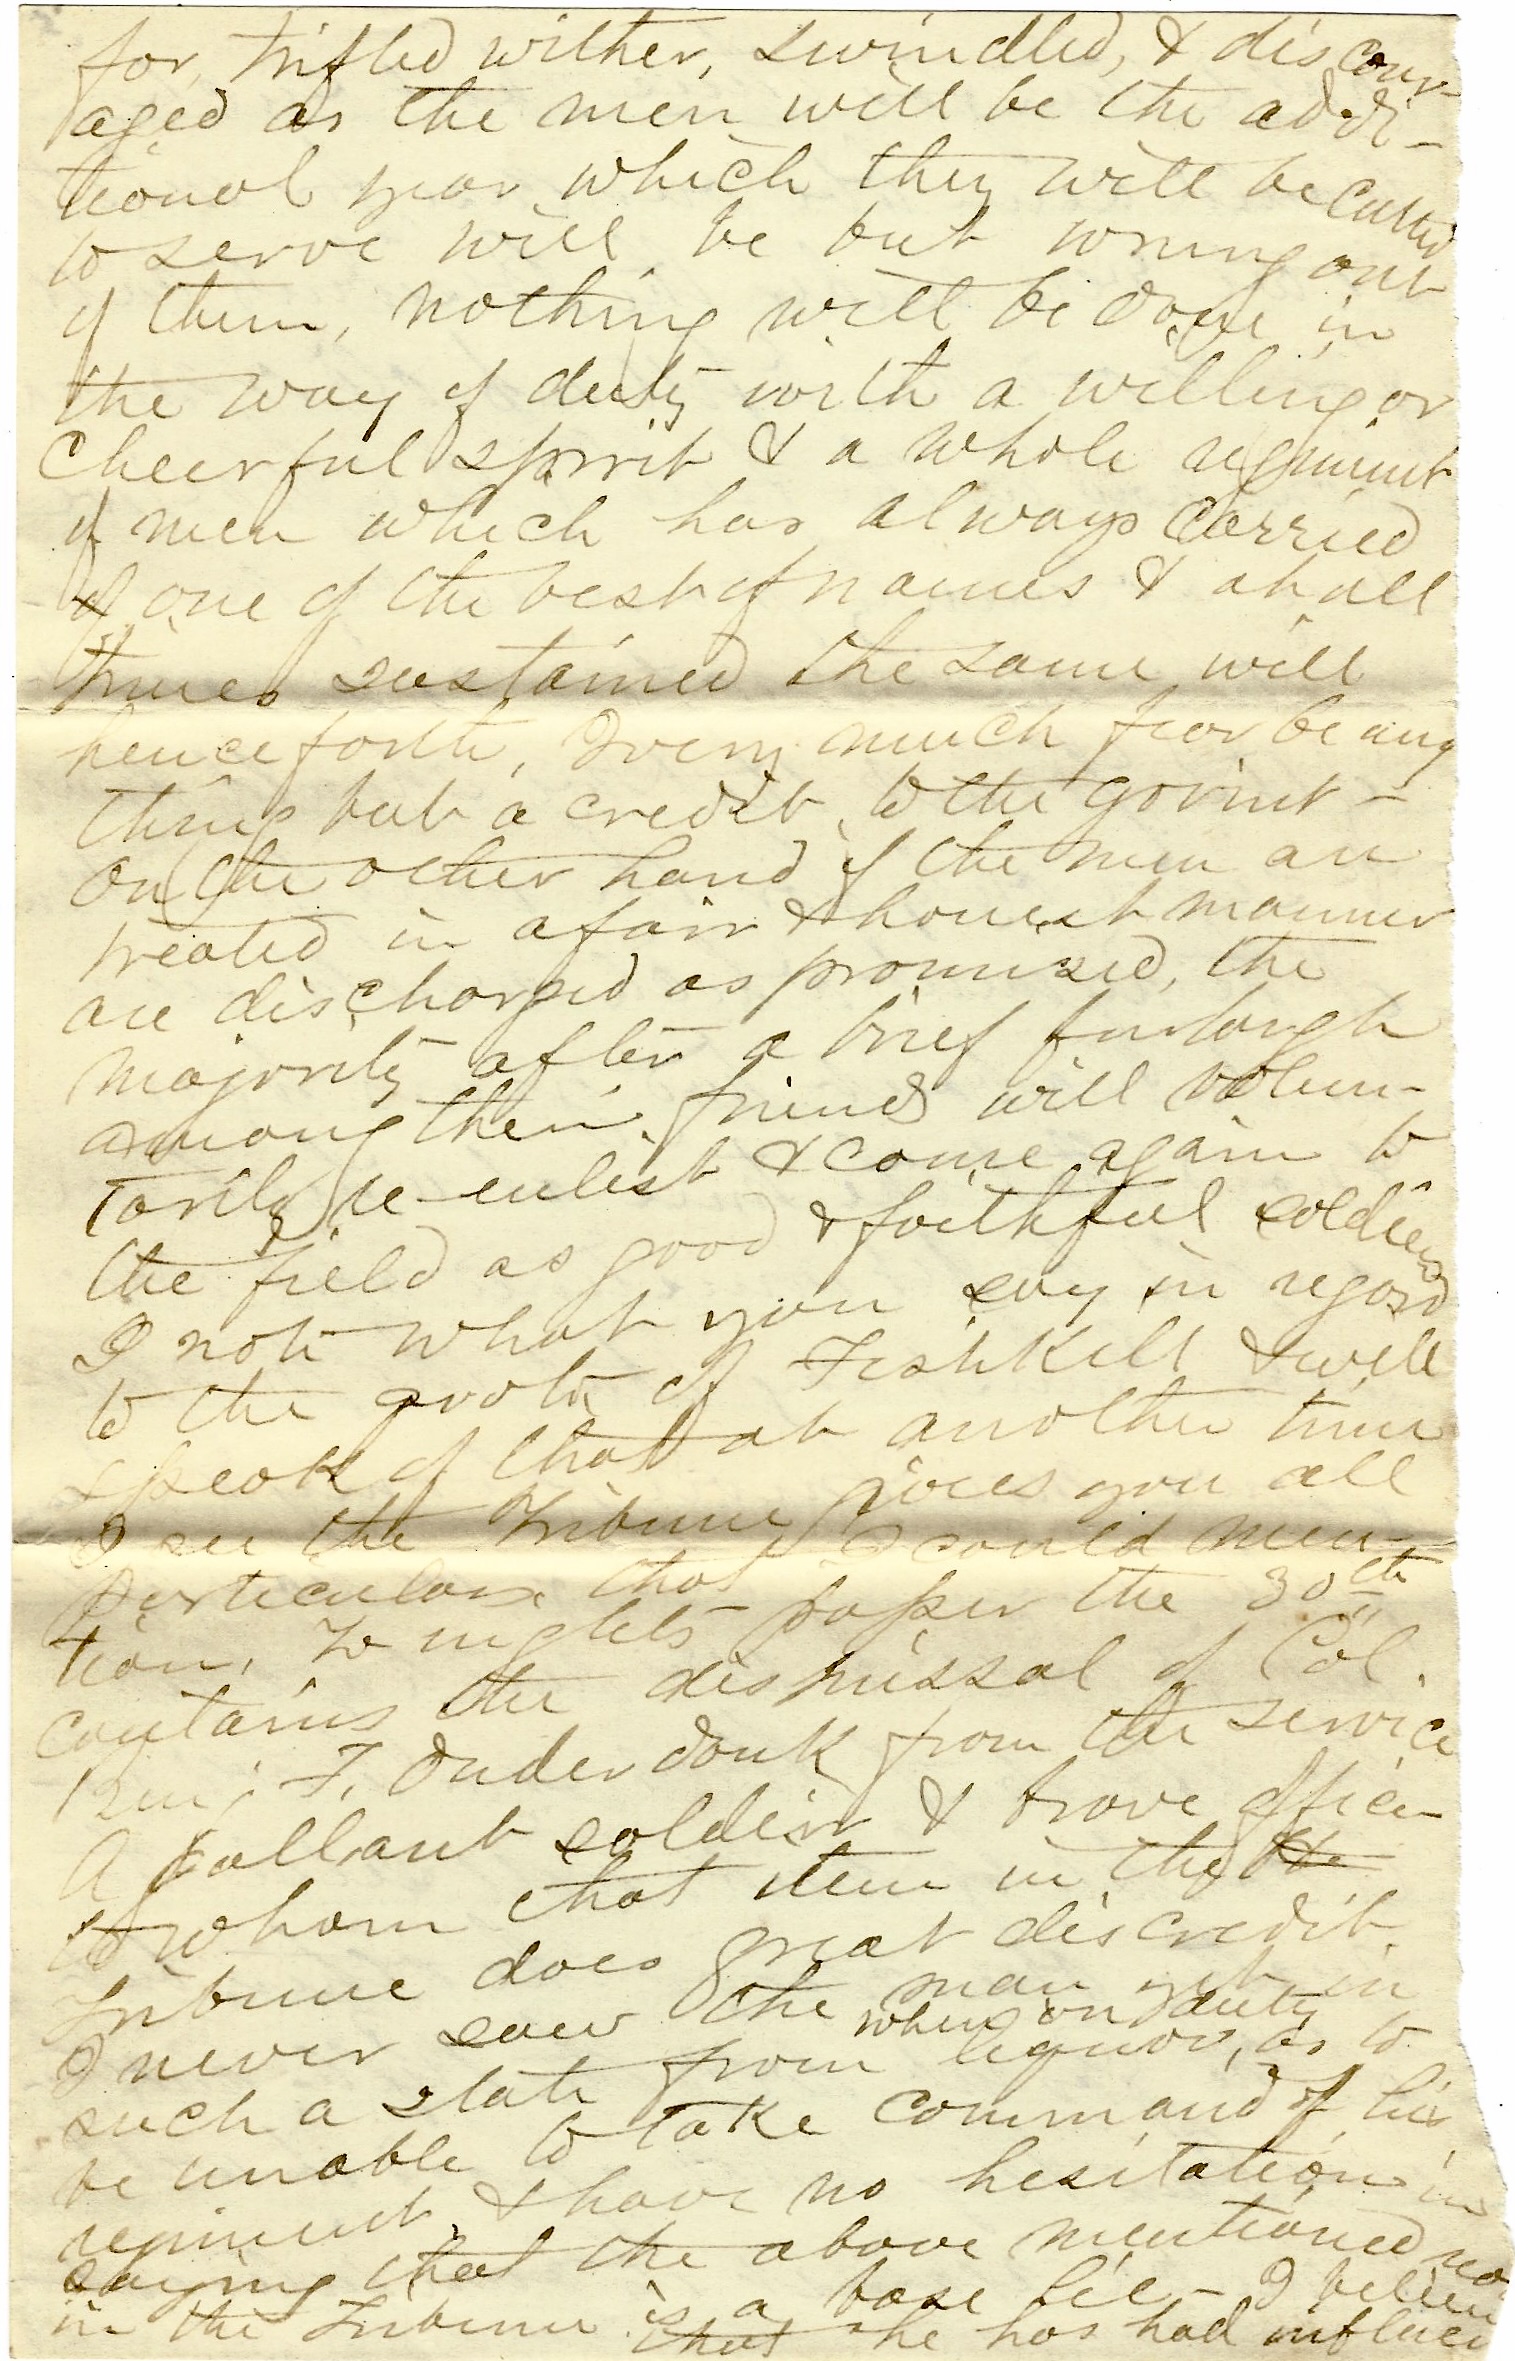 for, trifled wither, swindled, & discour-
aged as the men will be the addi-
tional year which they will be called
to serve will be but wrung out
of them, nothing will be done in
the way of duty with a willing or
cheerful spirit & a whole regiment
of men which has always carried
of one of the best of names & at all
times sustained the same will
henceforth, I very much fear be any
thing but a credit to the govmt -
On the other hand if the men are
treated in a fair & honest manner
are discharged as promised, the
majority after a brief furlough
among their friends will volun-
tarily re-enlist & come again to
the field as good & faithful soldiers
I note what you say in regard
to the quota of Fishkill & will
speak of that at another time
I see the Tribune gives you all
particulars that I could men-
tion. To nights paper the 30th
contains the dismissal of Col.
Benj. F. Onderdonk from the service
A gallant soldier & brave officer
to whom that item in the the
Tribune does great discredit.
I never saw the man yet in
such a state from liquor, when on duty as to
be unable to take command of his
regiment & have no hesitation in
saying that the above mentioned
in the Tribune is a base lie - I believe
that he has had